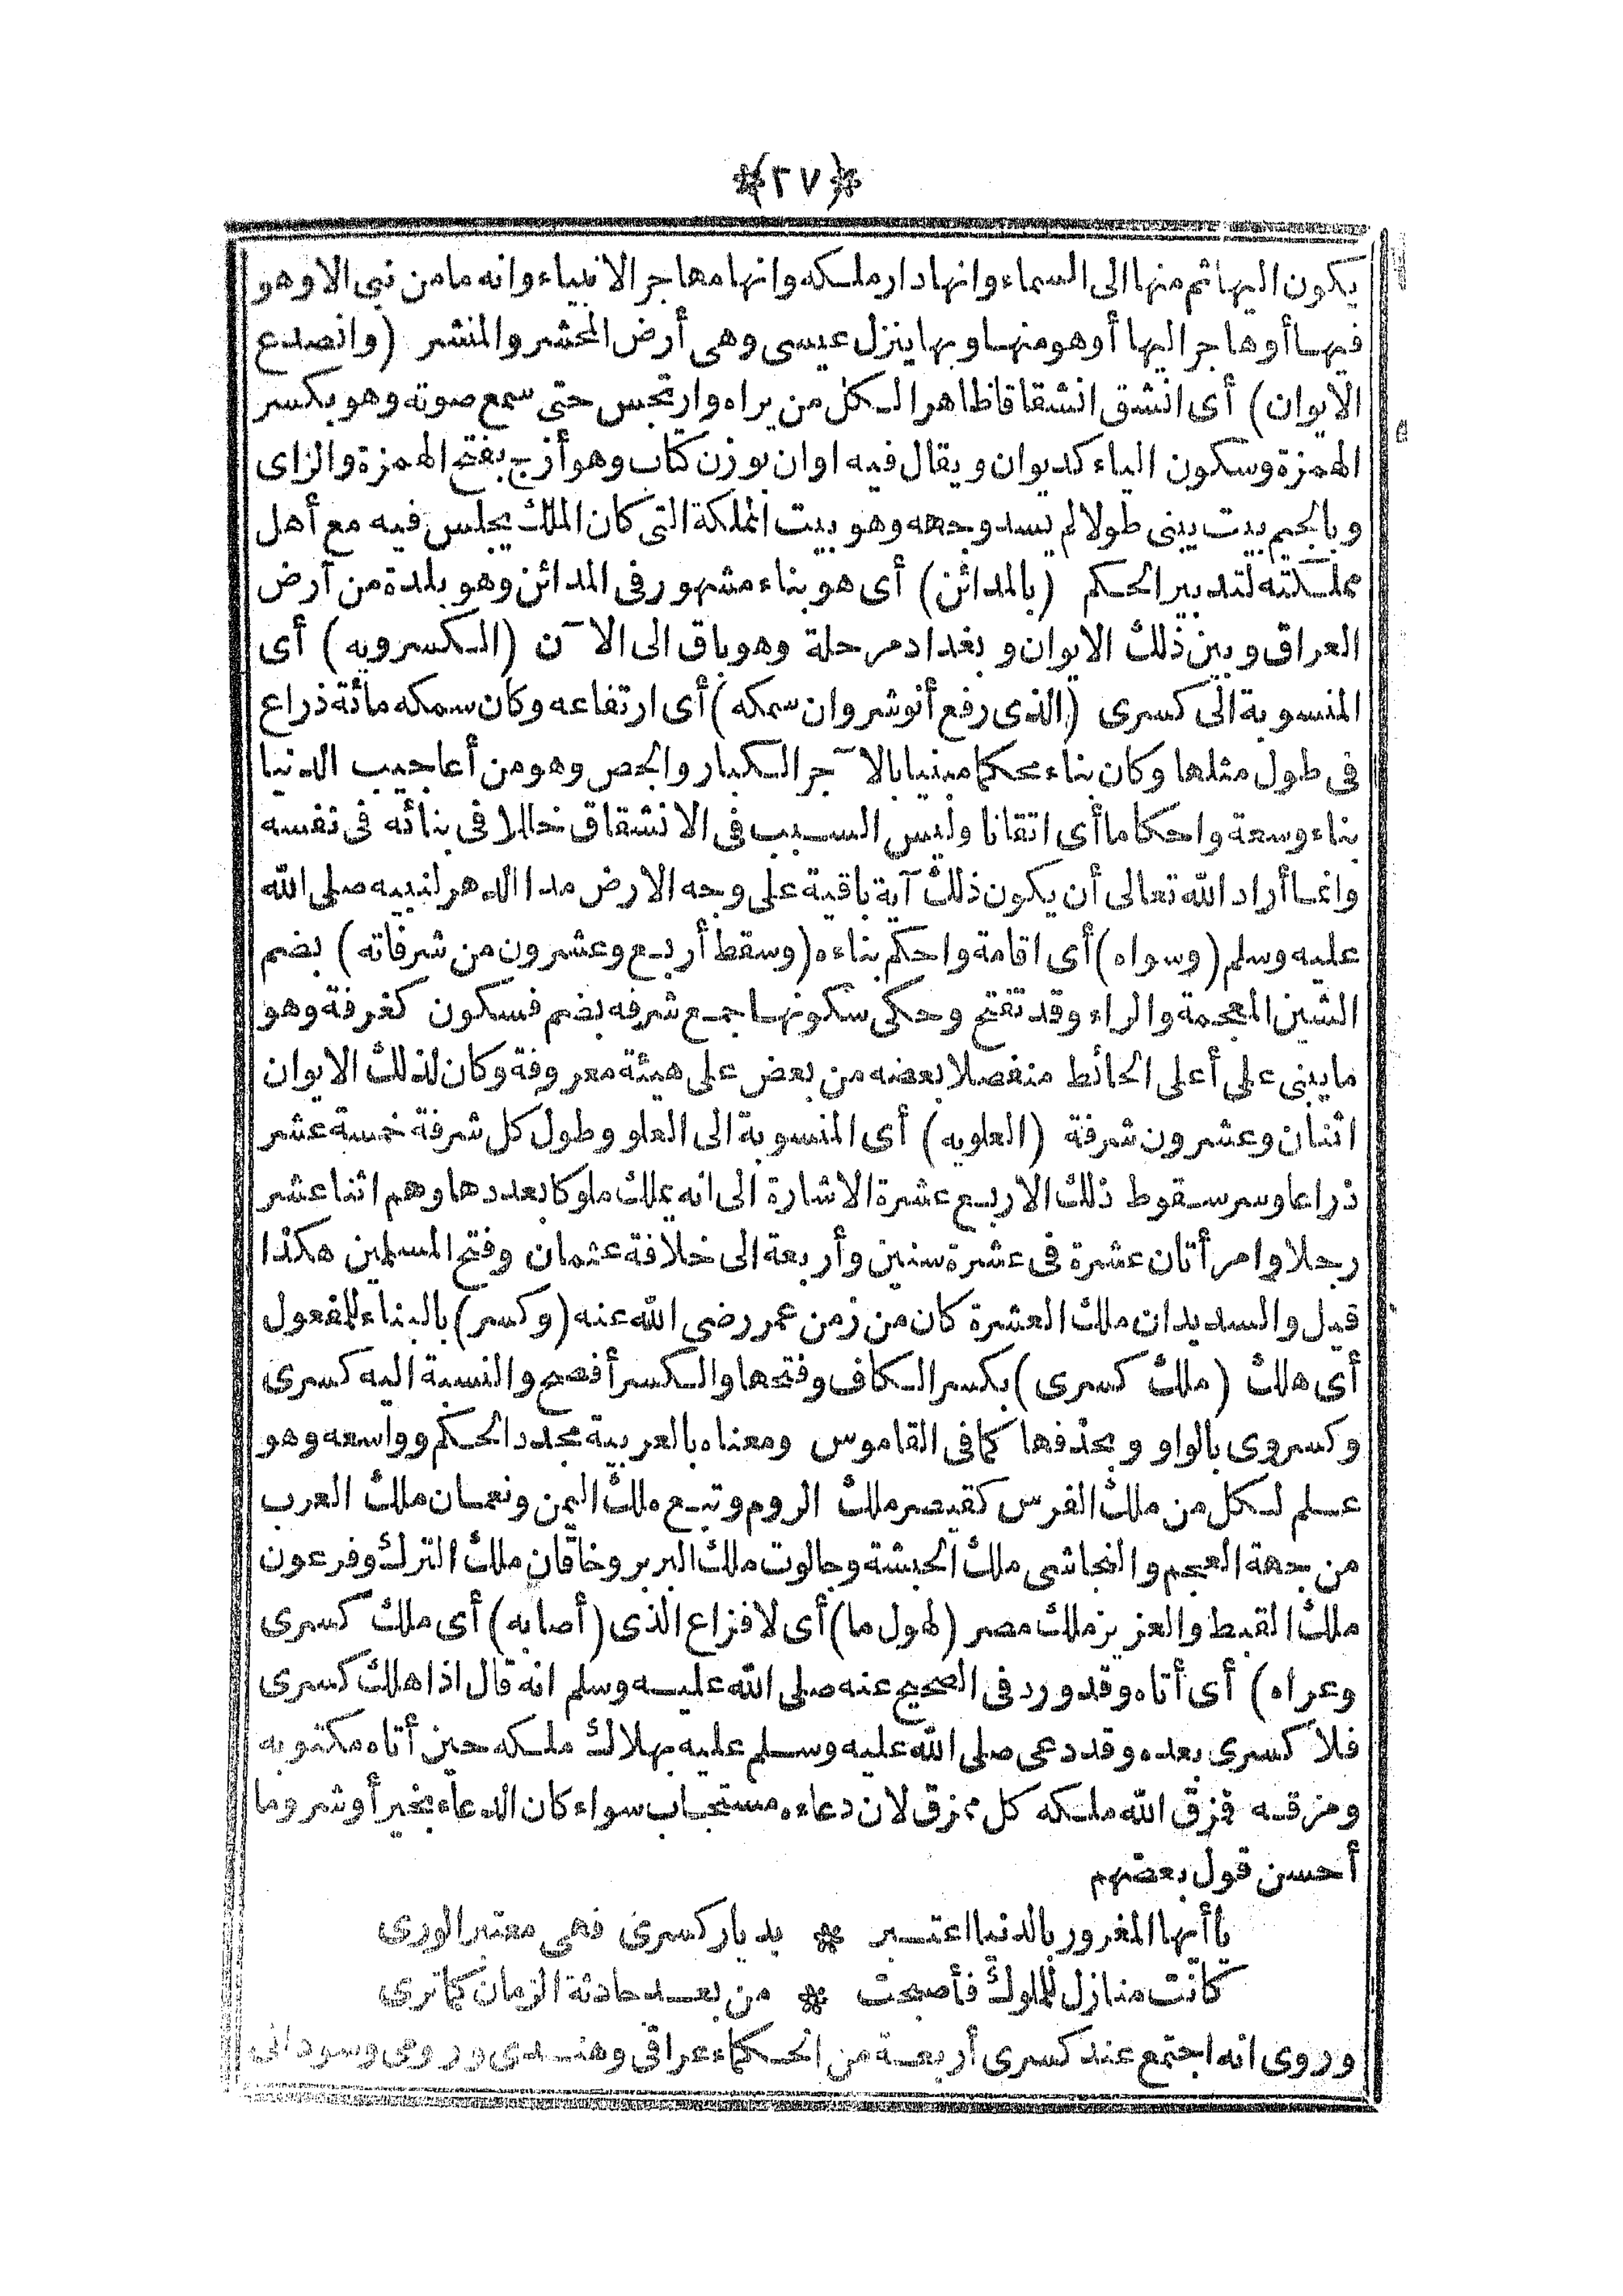 ﴿٢٧﴾
يكون اليها ثم منها الى السماء وانها دار ملكه وانها مهاجر الانبياء وانه ما من نبى الا وهو
فيها أو هاجر اليها أو هو منها وبها ينزل عيسى وهى أرض المحشر والمنشر (وانصدع
الايوان) أى انشق انشقاقا ظاهرا لكل من يراه وارتجس حتى سمع صوته وهو بكسر
الهمزة وسكون الياء كديوان ويقال فيه اوان بوزن كتاب وهو أزج بفتح الهمزة والزاى
وبالجيم بيت يبنى طولا لم يسد وجهه وهو بيت المملكة التى كان الملك يجلس فيه مع أهل
مملكته لتدبير الحكم (بالمدائن) أى هو بناء مشهور فى المدائن وهو بلدة من أرض
العراق وبين ذلك الايوان وبغداد مرحلة وهو باق الى الآن (الكسرويه) أى
المنسوبة الى كسرى (الذى رفع أنوشروان سمكه) أى ارتفاعه وكان سمكه مائة ذراع
فى طول مثلها وكان بناء محكما مبنيا بالآجر الكبار والجص وهو من أعاجيب الدنيا
بناء وسعة واحكاما أى اتقانا وليس السبب فى الانشقاق خللا فى بنائه فى نفسه
وانما أراد الله تعالى أن يكون ذلك آية باقية على وجه الارض مدا الدهر لنبيه صلى الله
عليه وسلم (وسواه) أى اقامة واحكم بناءه (وسقط أربع وعشرون من شرفاته) بضم
الشين المعجمة والراء وقد تفتح وحكى سكونها جمع شرفه بضم فسكون كغرفة وهو
ما يبنى على أعلى الحائط منفصلا بعضه من بعض على هيئة معروفة وكان لذلك الايوان
اثنان وعشرون شرفة (العلويه) أى المنسوبة الى العلو وطول كل شرفة خمسة عشر
ذراعا وسر سقوط ذلك الاربع عشرة الاشارة الى انه يملك ملوكا بعددها وهم اثنا عشر
رجلا وامرأتان عشرة فى عشرة سنين وأربعة الى خلافة عثمان وفتح المسلمين هكذا
قيل والسديد ان ملك العشرة كان من زمن عمر رضى الله عنه (وكسر) بالبناء للمفعول
أى هلك (ملك كسرى) بكسر الكاف وفتحها والكسر أفصح والنسبة اليه كسرى
وكسروى بالواو وبحذفها كما فى القاموس ومعناه بالعربية مجدد الحكم وواسعه وهو
علم لكل من ملك الفرس كقيصر ملك الروم وتبع ملك اليمن ونعمان ملك العرب
من جهة العجم والنجاشى ملك الحبشة وجالوت ملك البربر وخاقان ملك الترك وفرعون
ملك القبط والعزيز ملك مصر (لهول ما) أى لافزاع الذى (أصابه) أى ملك كسرى
وعراه) أى أتاه وقد ورد فى الصحيح عنه صلى الله عليه وسلم انه قال اذا هلك كسرى
فلا كسرى بعده وقد دعى صلى الله عليه وسلم عليه بهلاك ملكه حين أتاه مكتوبه
ومزقه فمزق الله ملكه كل ممزق لان دعاءه مستجاب سواء كان الدعاء بخير أو شر وما
أحسن قول بعضهم
يا أيها المغرور بالدنيا اعتبر * بديار كسرى فهى معتبر الورى
كانت منازل للملوك فأصبحت * من بعد حادثة الزمان كما ترى
وروى انه اجتمع عند كسرى أربعة من الحكماء عراقى وهندى ورومى وسودانى